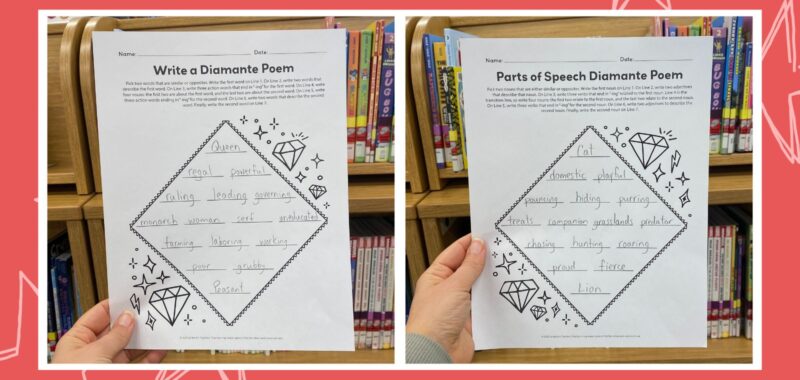 Name: Date:
Write a Diamante Poem
Pick two words that are similar or opposites. Write the first word on Line 1. On Line 2, write two words that
describe the first word. On Line 3, write three action words that end in "-ing" for the first word. On Line 4, write
four nouns: the first two are about the first word, and the last two are about the second word. On Line 5, write
three action words ending in "-ing" for the second word. On Line 6, write two words that describe the second
word. Finally, write the second word on Line 7.
Queen
regal powerful
ruling leading governing
monarch woman serf uneducated
farming laboring working
poor grubby
Peasant
Name: Date:
Parts of Speech Diamante Poem
Pick two nouns that are either similar or opposites. Write the first noun on Line 1. On Line 2, write two adjectives
that describe that noun. On Line 3, write three verbs that end in "-ing" related to the first noun. Line 4 is the
transition line, so write four nouns: the first two relate to the first noun, and the last two relate to the second noun.
On Line 5, write three verbs that end in "-ing" for the second noun. On Line 6, write two adjectives to describe the
second noun. Finally, write the second noun on Line 7.
Cat
domestic playful
pouncing hiding purring
treats companion grasslands predator
chasing hunting roaring
proud fierce
Lion